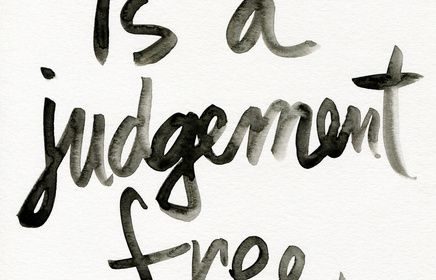 is a
judgement
free